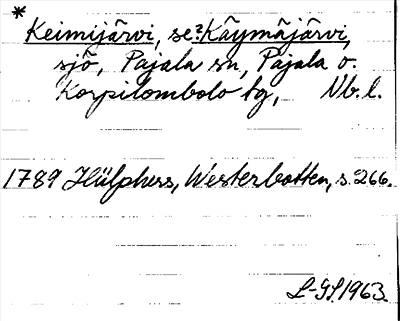 *
Keimijärvi, se? Käymäjärvi,
sjö, Pajala sn, Pajala o.
Korpilombolo tg, Nb. l.
1789 Hülphers, Westerbotten, s. 266.
L-GS.1963.